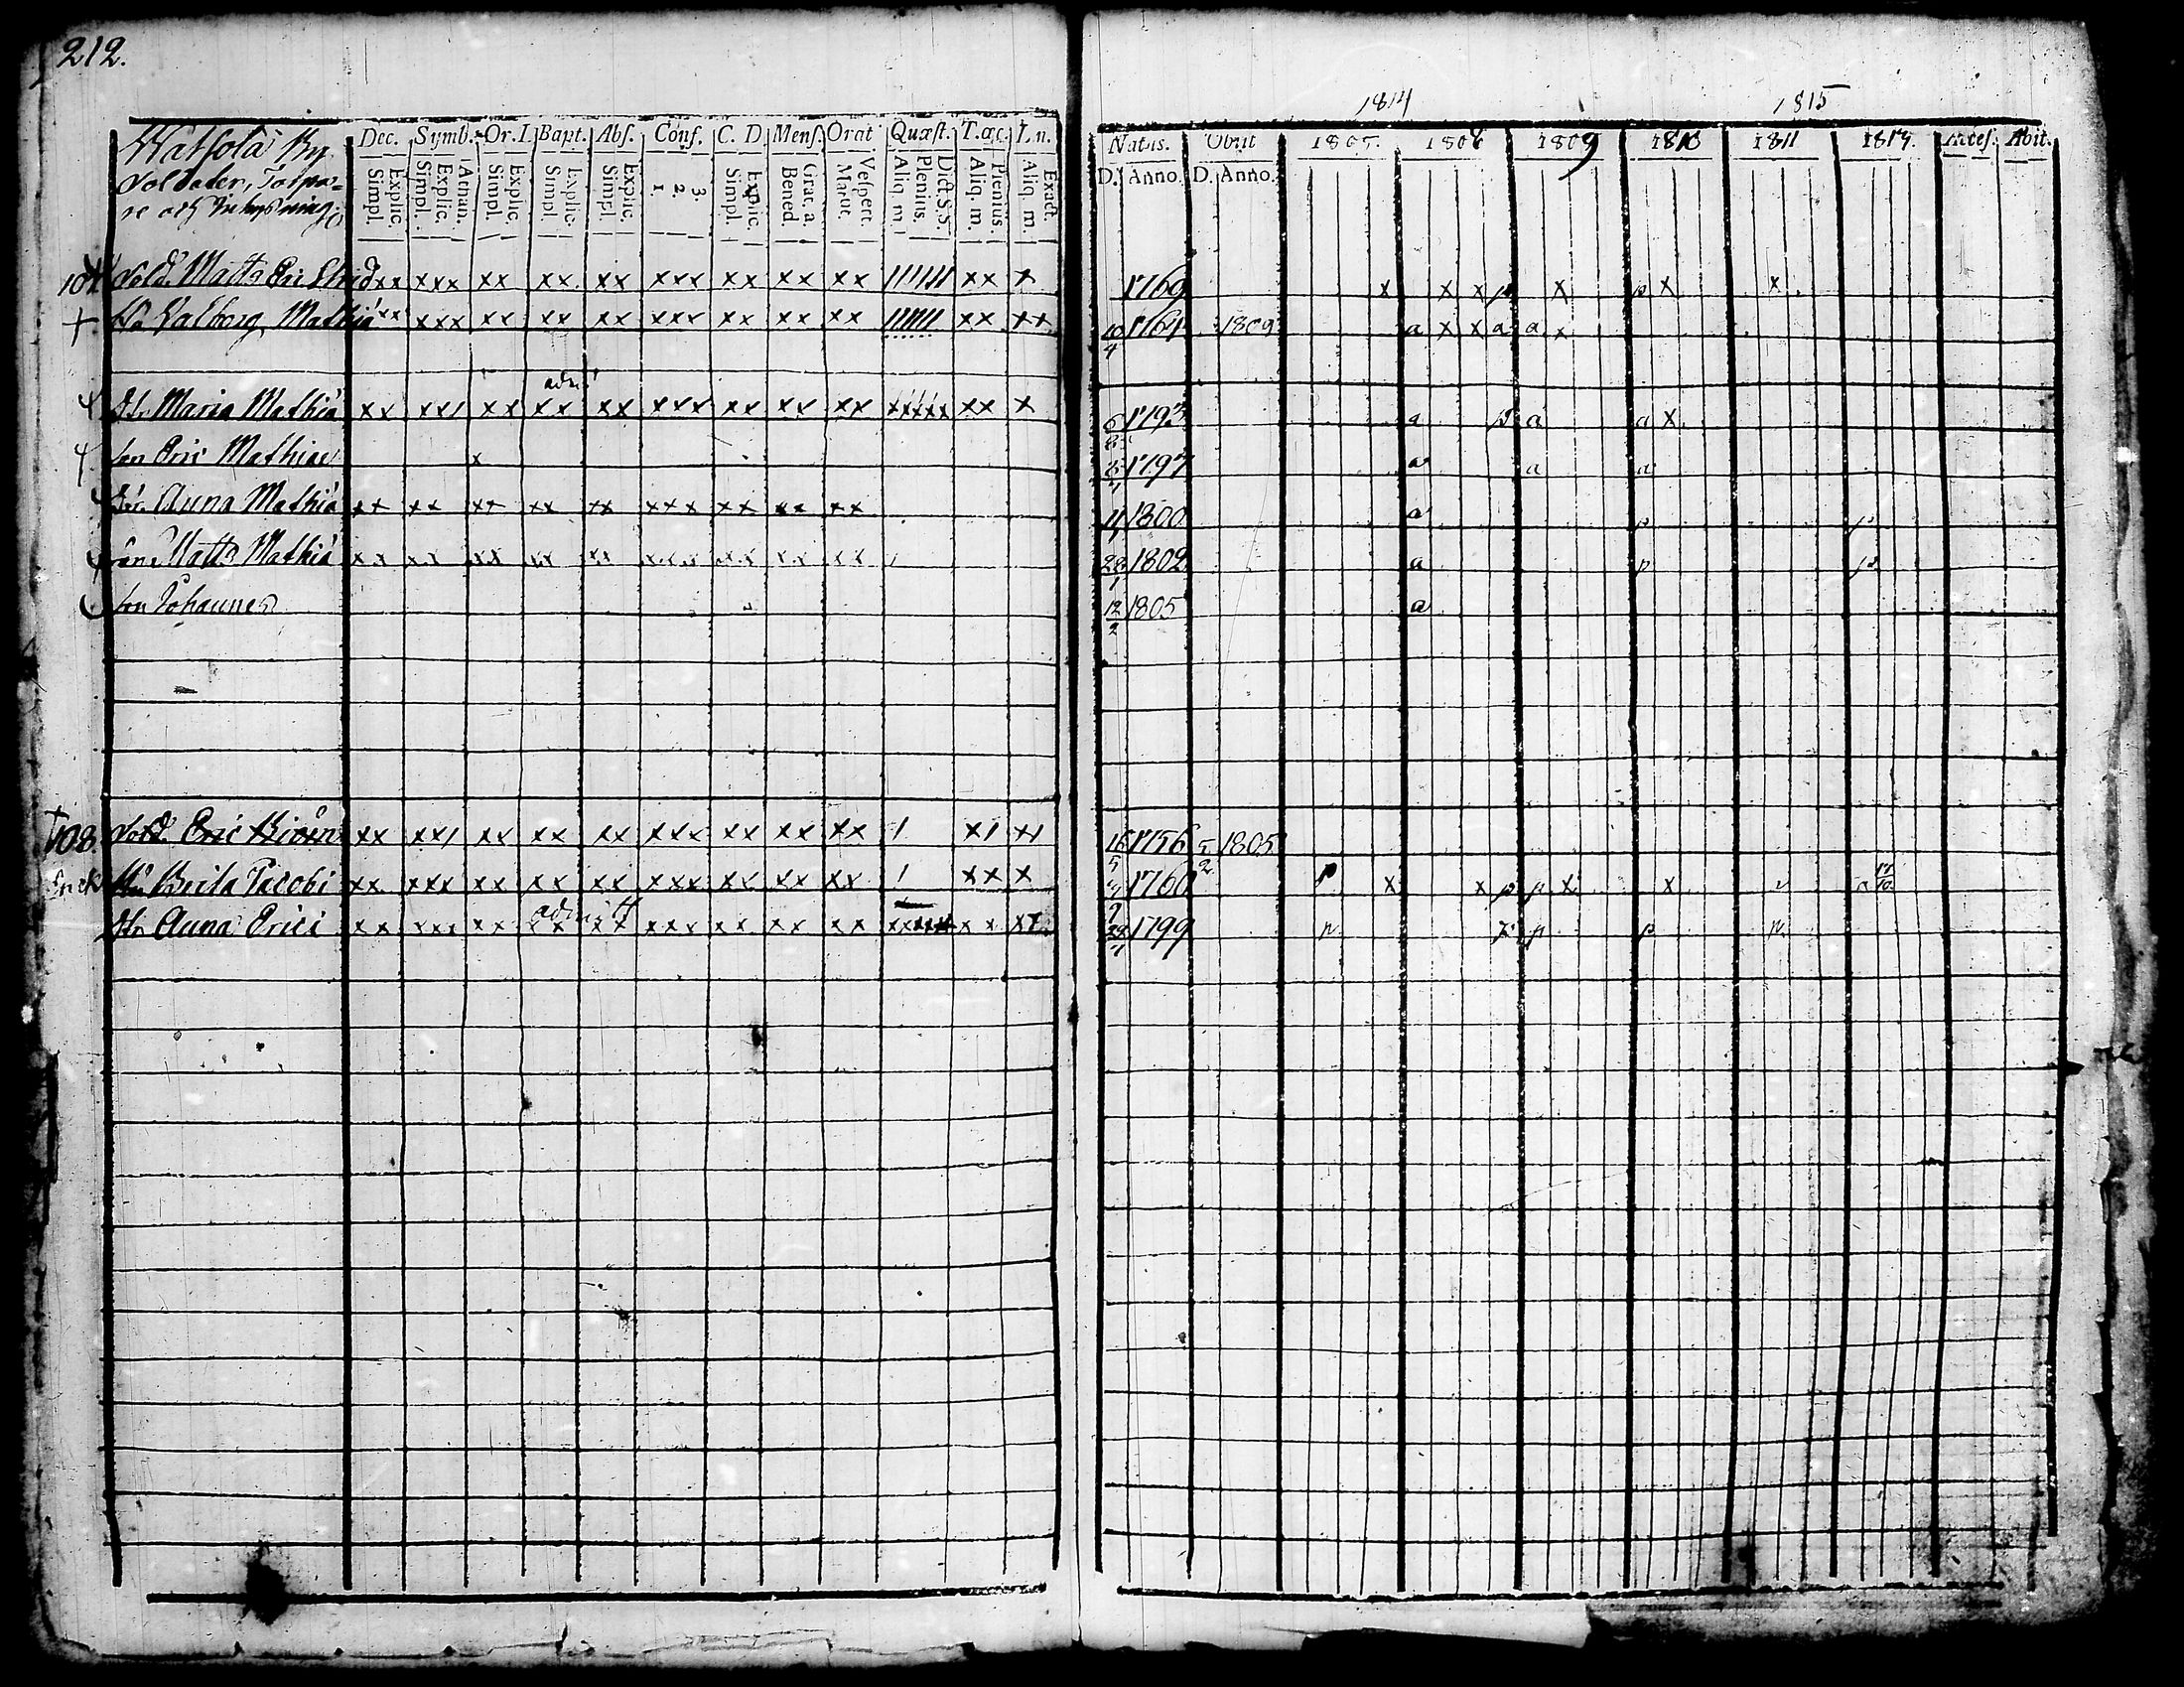 212.
1814 1815
Watsola By
Soldater, Torpa=
re och Inhysning
Dec. Symb. Or. D. Bapt. Abs. Conf. C. D. Mens. Orat Quæst. T. œc. L. n.
Explic. Simpl. Athan. Explic. Simpl. Explic. Simpl. Explic. Simpl. Explic. Simpl. 3. 2. 1. Explic. Simpl. Grat. a. Bened. Vespert. Matut. Dict. S. S. Plenius. Aliq. m. Plenius. Aliq. m. Exact. Aliq. m.
Natus. Obiit 1805. 1806 1809 1810 1811 1814. Attes. Abit.
D. Anno. D. Anno.
104 Sold. Matts Eric xx xxx xx xx xx xxx xx xx xx 1111111 xx x 1769 x x x p x p x x
† Hu Valborg Mathiæ xx xxx xx xx xx xxx xx xx xx xx xx 10/4 1764 1809 a x x a a x
admi
Dtr. Maria Mathiæ xx xx/ xx xx xx xxx xx xx xx xxxxx xx x 6/8 1793 a p a a x
Son Eric Mathiæ x 1797 a a a
Dtr. Anna Mathiæ xx xx xx xx xx xxx xx xx xx 1800 a p p
Son Matts Mathiæ xx xx xx xx xx xxx xx xx xx 28/1 1802 a p p
Son Johannes 12/2 1805 a
†108. Sold. Eric Biörn xx xx/ xx xx xx xxx xx xx xx 1 x1 x1 16/5 1756 5/2 1805
Enck Hu Beila Jacobi xx xxx xx xx xx xxx xx xx xx 1 xx x 1760 p x x p p x x
admitt
Dtr Anna Erici xx xxx xx xx xx xxx xx xx xx xxxxx xx xx 1799 p p p p p